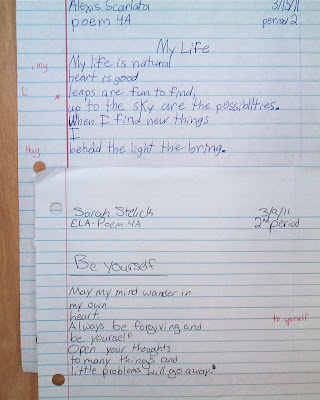 Alexis Scarlata 3/15/11
poem 4A period 2
My Life
, my My life is natural
heart is good
L * leaps are fun to find,
up to the sky are the possiblities.
When I find new things
I
they behold the light the bring.
Sarah Stelick 3/9/11
ELA-Poem 4A 2nd period
Be yourself
May my mind wander in
my own
heart
Always be forgiving and to yourself
be yourself
Open your thoughts
to many things and
little problems will go away!